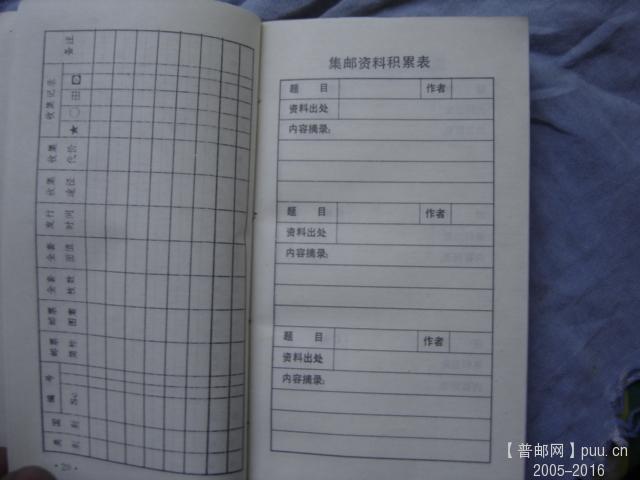 备注
收集记录
★ ○ 田
收集 代价
收集 途径
发行 时间
全套 面值
全套 枚数
邮票 图案
邮票 简称
编号
No.
国别
类别
集邮资料积累表
题 目 作者
资料出处
内容摘录:
题 目 作者
资料出处
内容摘录:
题 目 作者
资料出处
内容摘录:
【普邮网】puu.cn
2005-2016